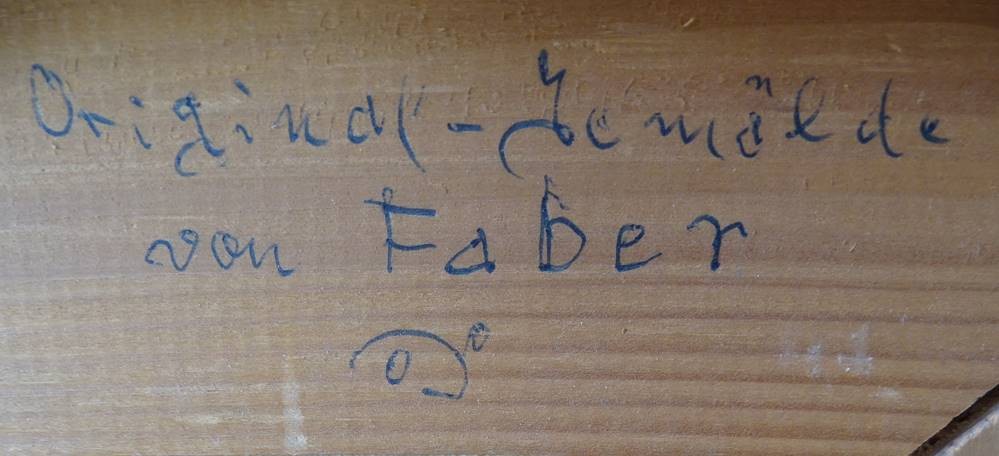 Original-Gemälde
von Faber